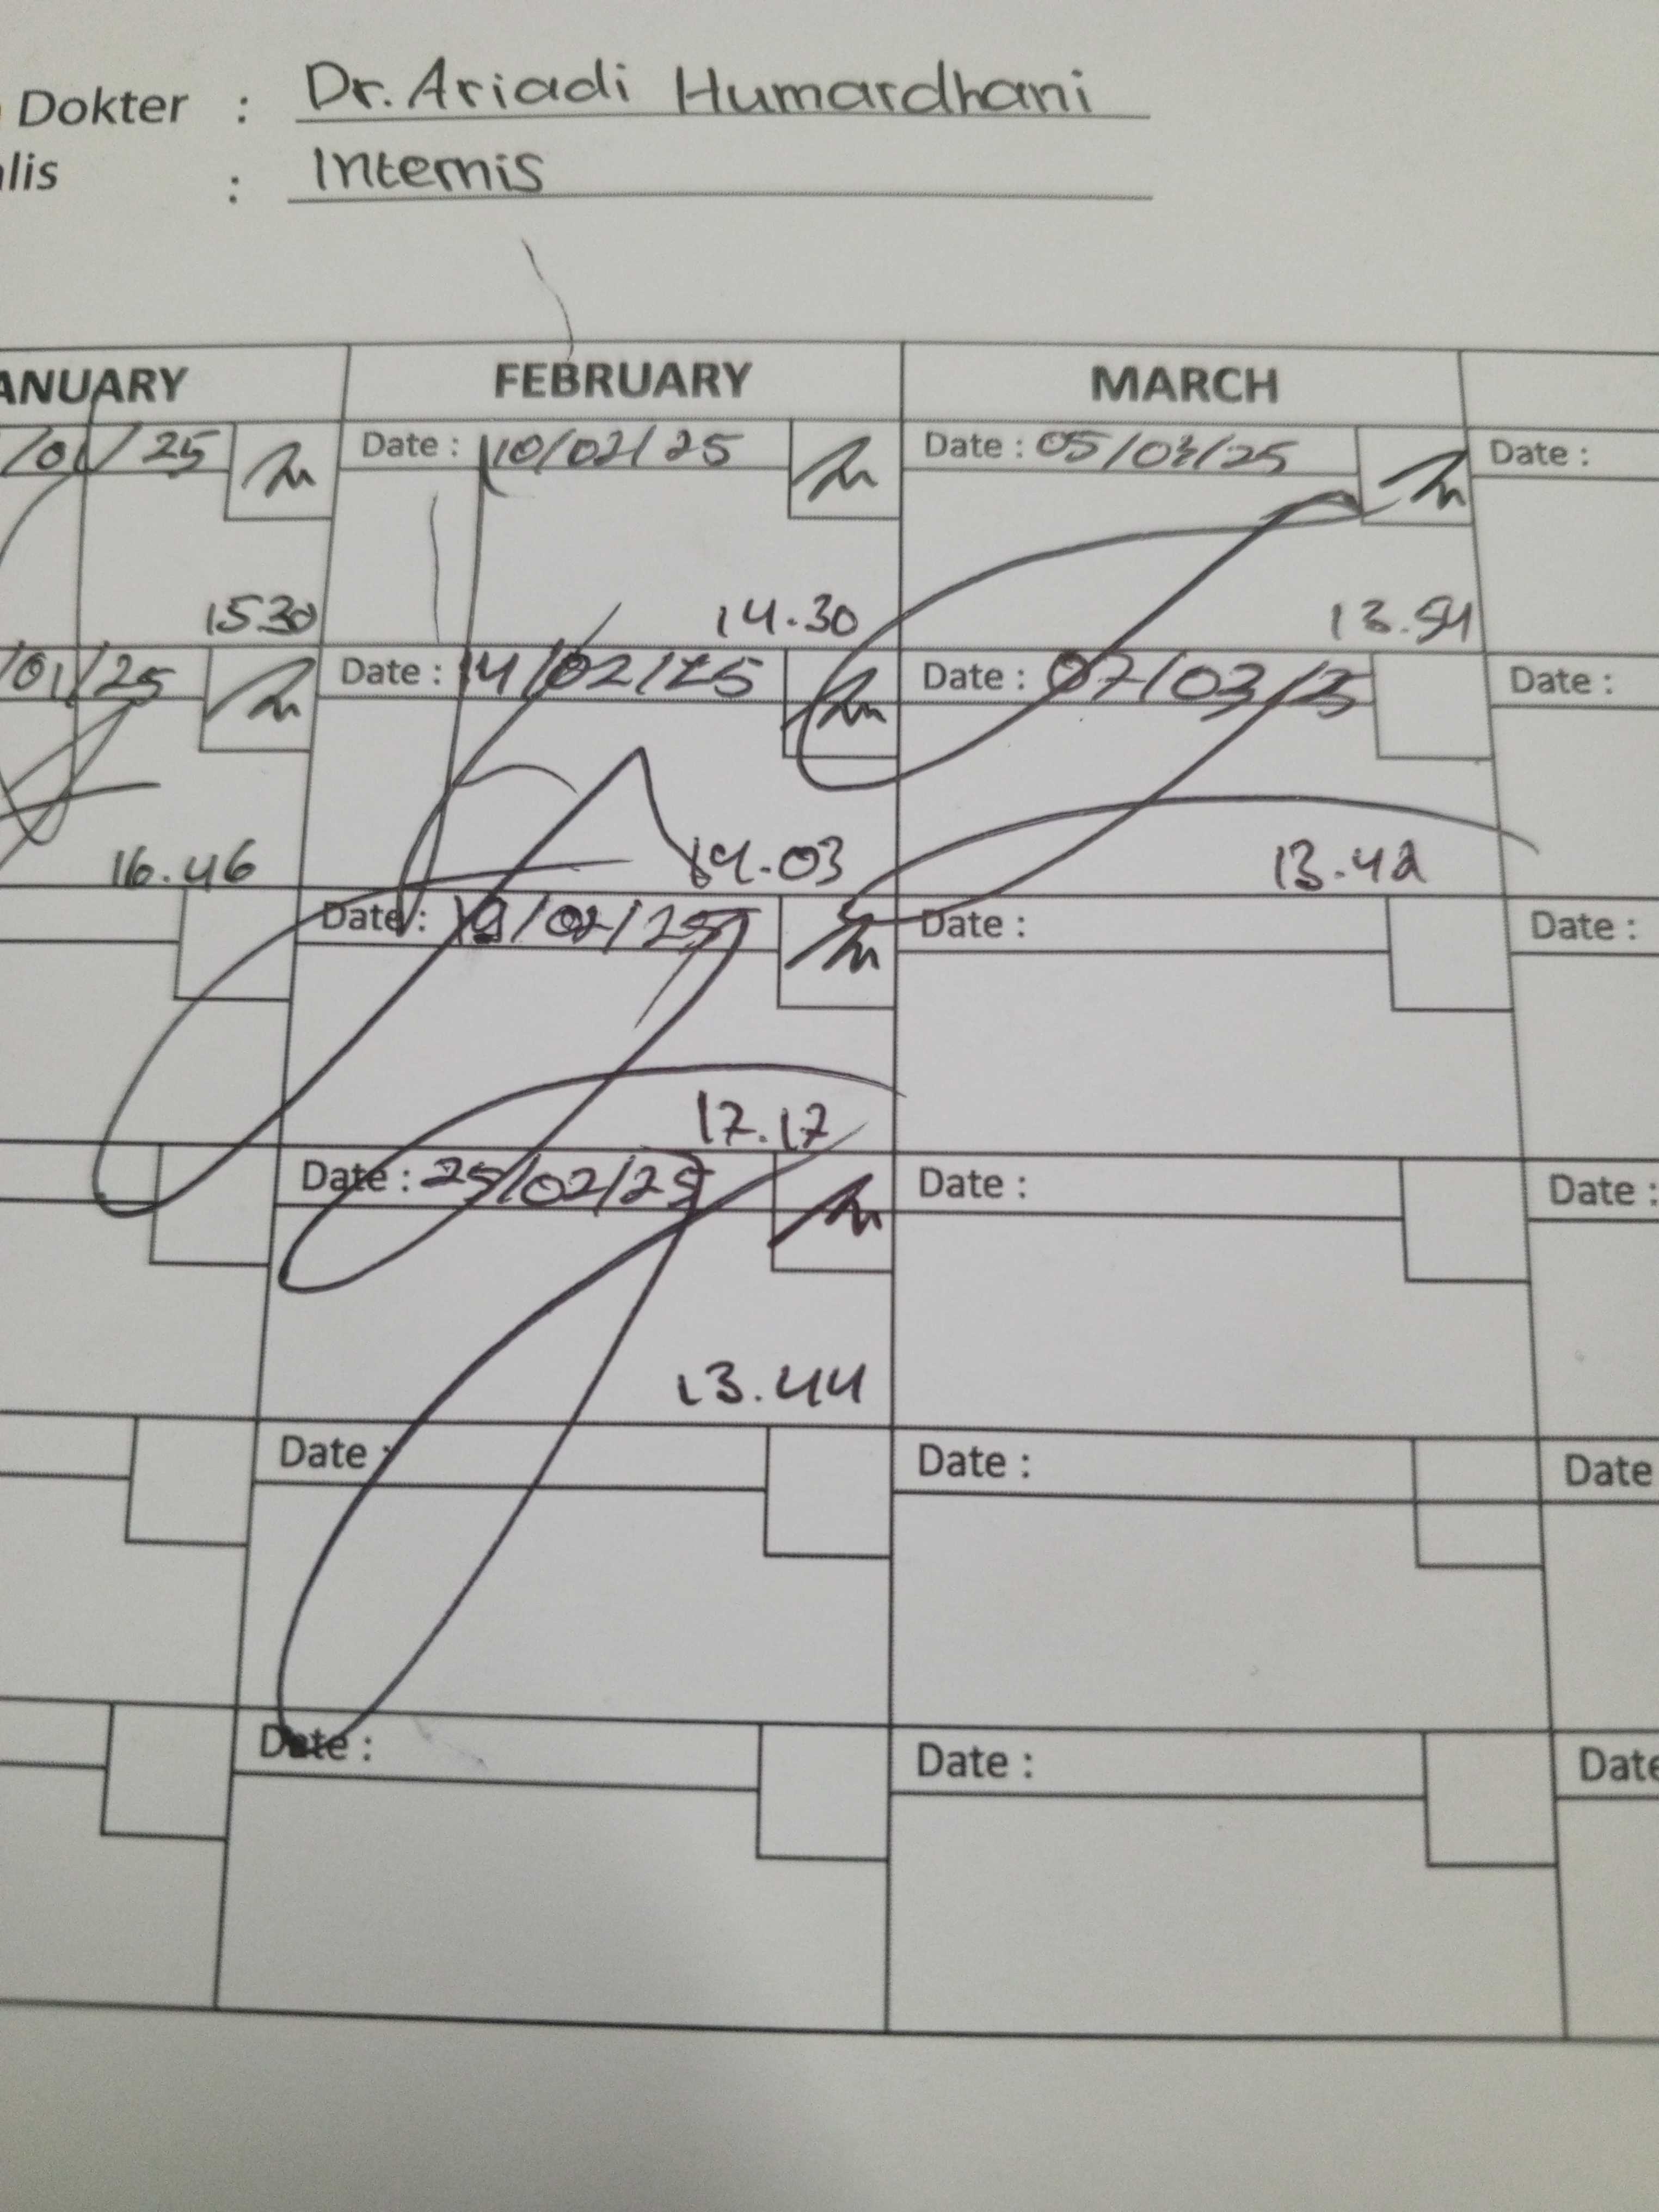 Dokter : Dr. Ariadi Humardhani
lis : Internis
ANUARY FEBRUARY MARCH
/01/25 Date : 10/02/25 Date : 05/03/25 Date :
1530 14.30 13.54
/01/25 Date : 14/02/25 Date : 07/03/25 Date :
16.46 14.03 13.42
Date : /02/25 Date : Date :
17.17
Date : 25/02/25 Date : Date :
13.44
Date : Date : Date
Date : Date : Date